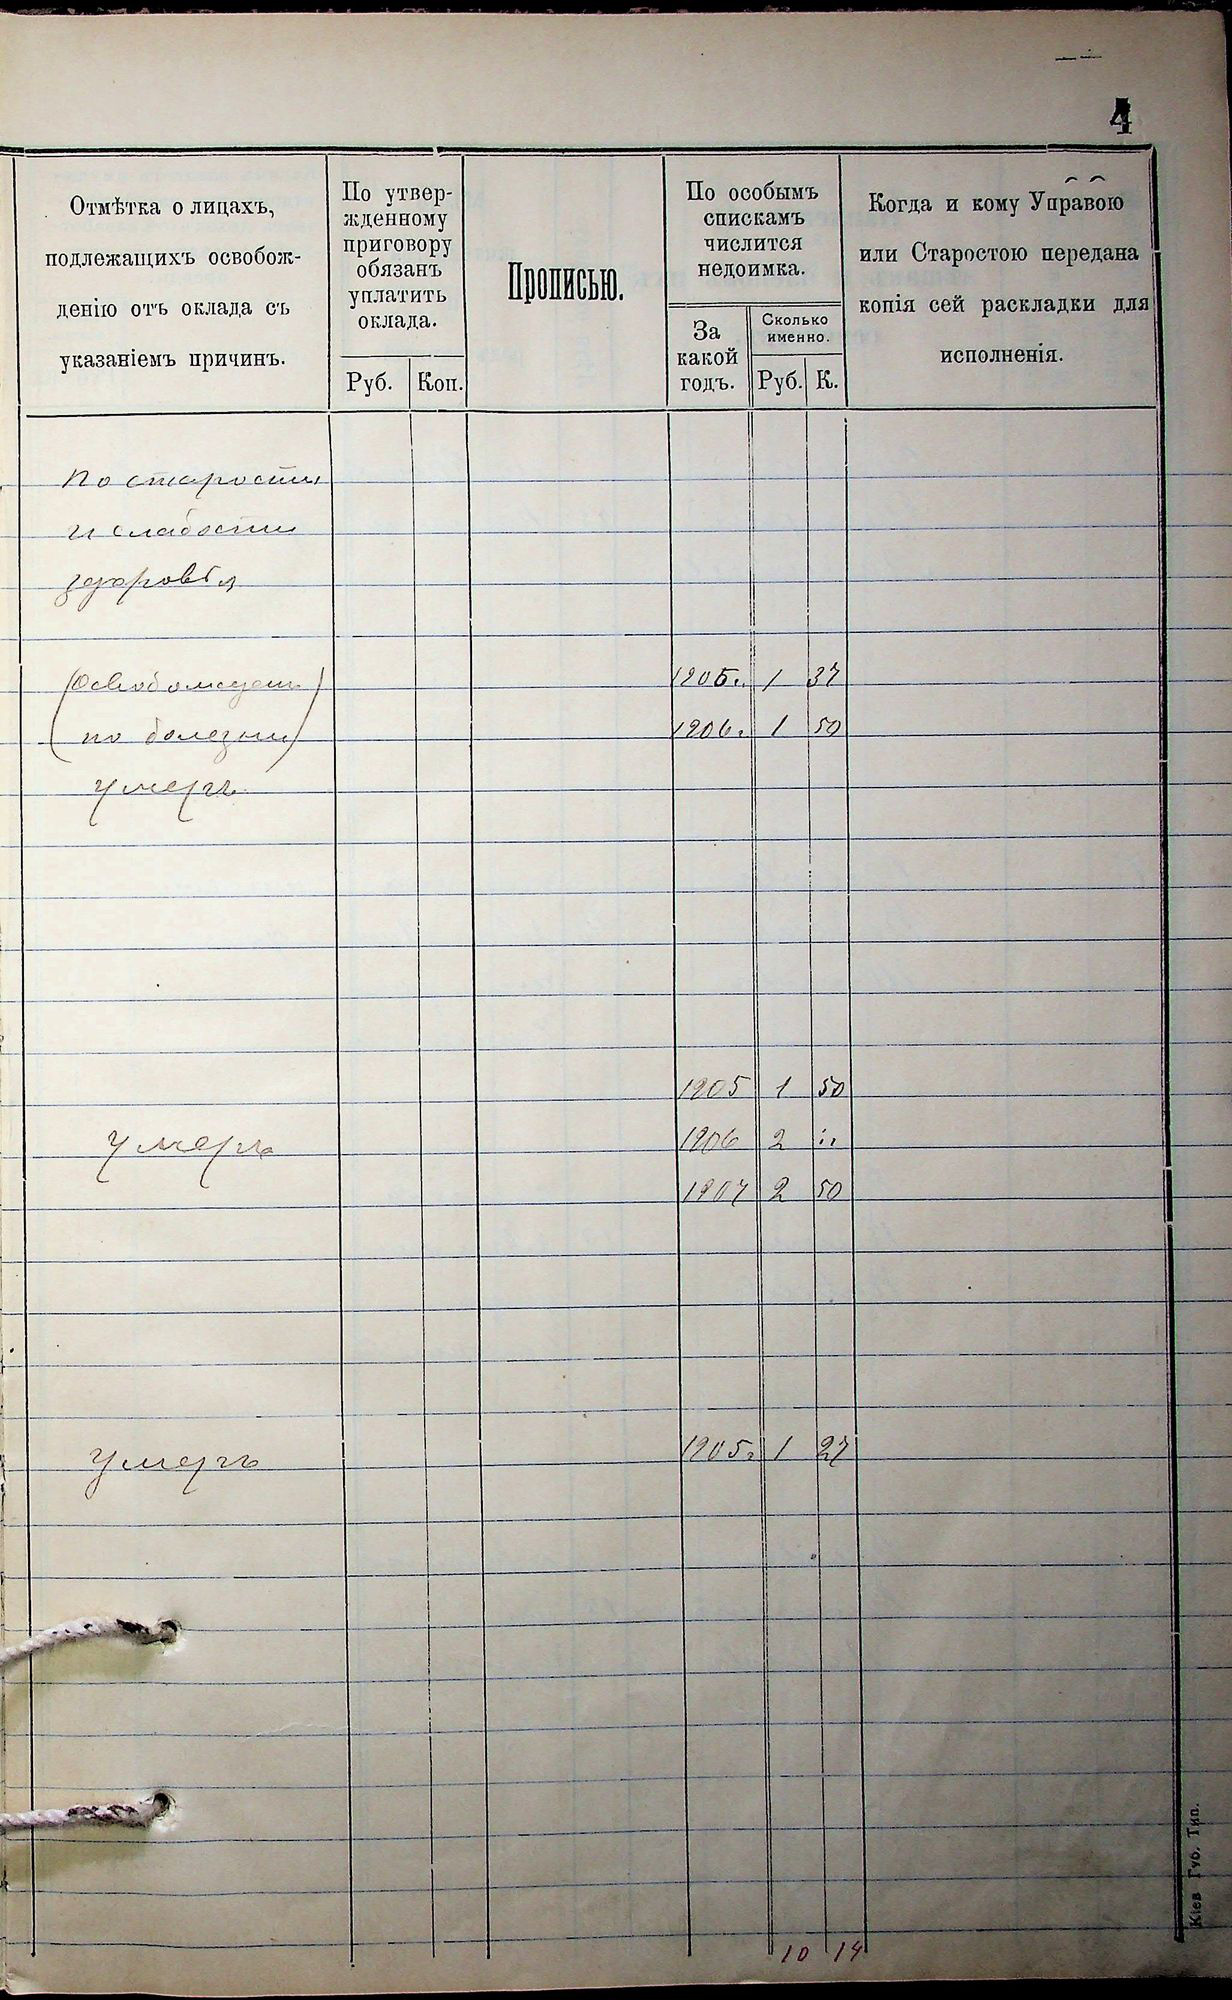 4
Отмѣтка о лицахъ,
подлежащихъ освобож-
денію отъ оклада съ
указаніемъ причинъ.
По утвер-
жденному
приговору
обязанъ
уплатить
оклада.
Руб. Коп.
Прописью.
По особымъ
спискамъ
числится
недоимка.
За
какой
годъ.
Сколько
именно.
Руб. К.
Когда и кому Управою
или Старостою передана
копія сей раскладки для
исполненія.
По старости
и слабости
здоровья
(Освобожденъ 1905г. 1 37
по болезни) 1906г. 1 50
умеръ
1905 1 50
умеръ 1906 2 "
1907 2 50
умеръ 1905г. 1 27
10 14
Кіев Губ. Тип.